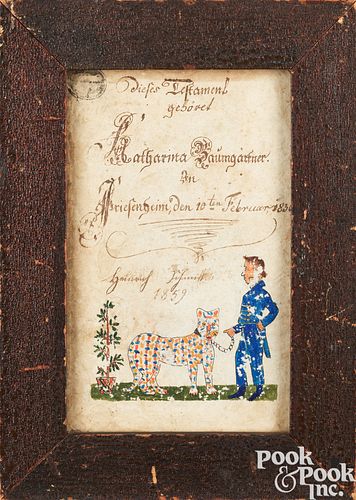 Dieses Testament
gehöret
Katharina Baumgärtner.
in
Friesenheim, den 10ten Februar
Heinrich Schmitt
1859
POOK
& POOK
INC.